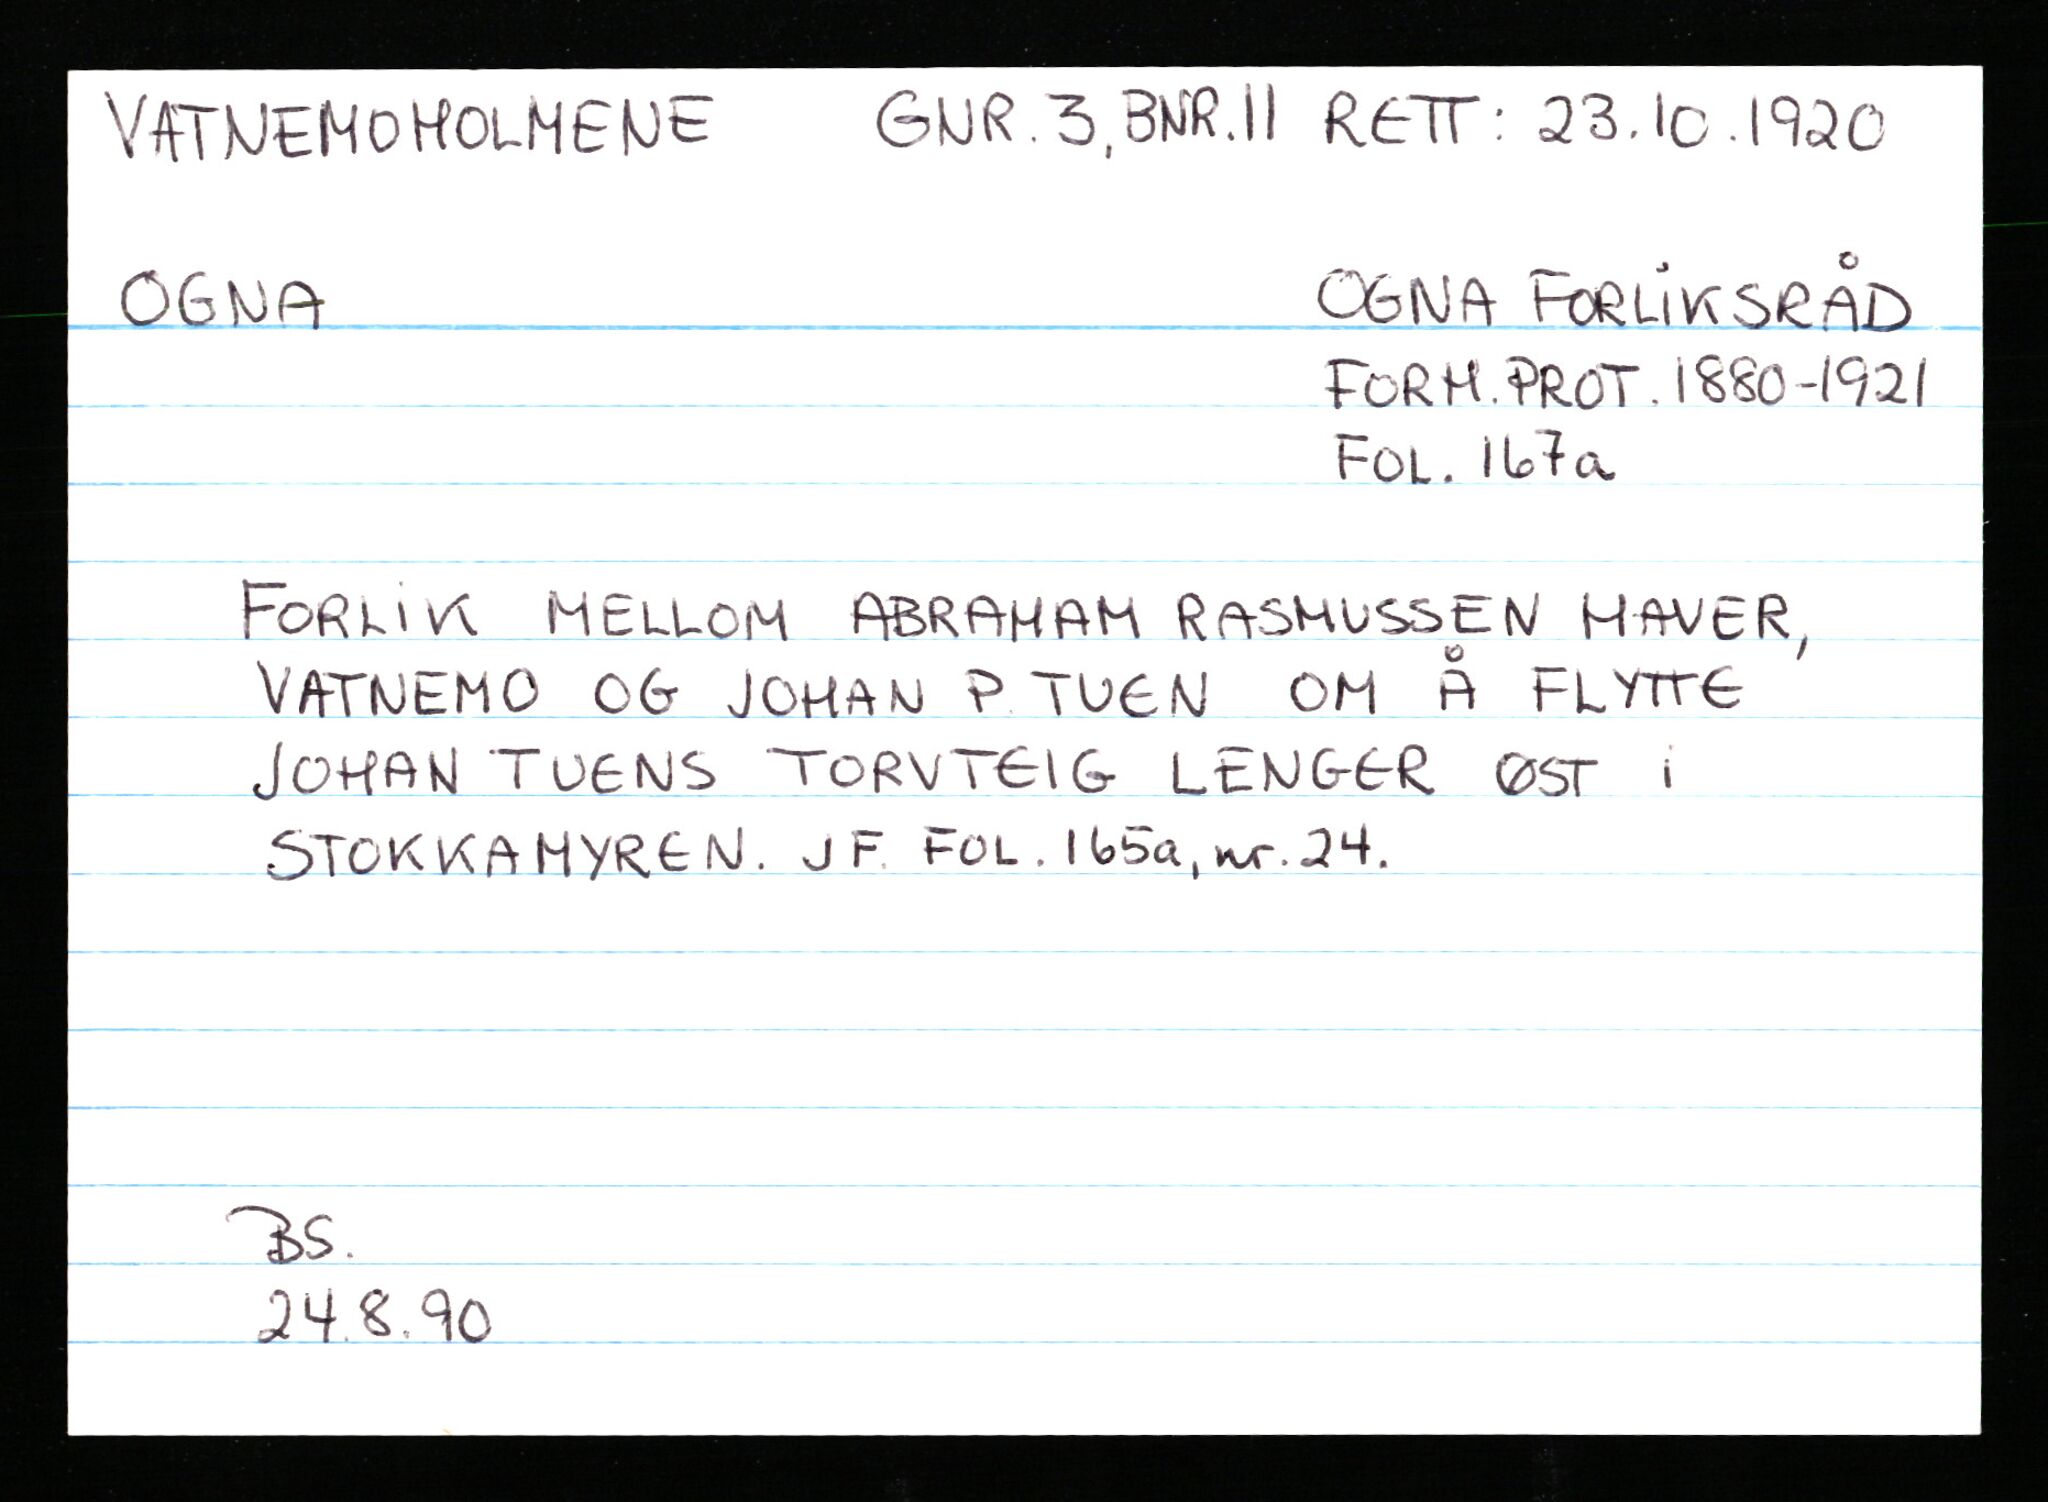 VATNEMOHOLMENE GNR. 3, BNR. 11 RETT: 23.10.1920
OGNA OGNA FORLIKSRÅD
FORH. PROT. 1880-1921
FOL. 167a
FORLIK MELLOM ABRAHAM RASMUSSEN HAVER,
VATNEMO OG JOHAN P. TUEN OM Å FLYTTE
JOHAN TUENS TORVTEIG LENGER ØST i
STOKKAMYREN. JF. FOL. 165a, nr. 24.
BS.
24.8.90